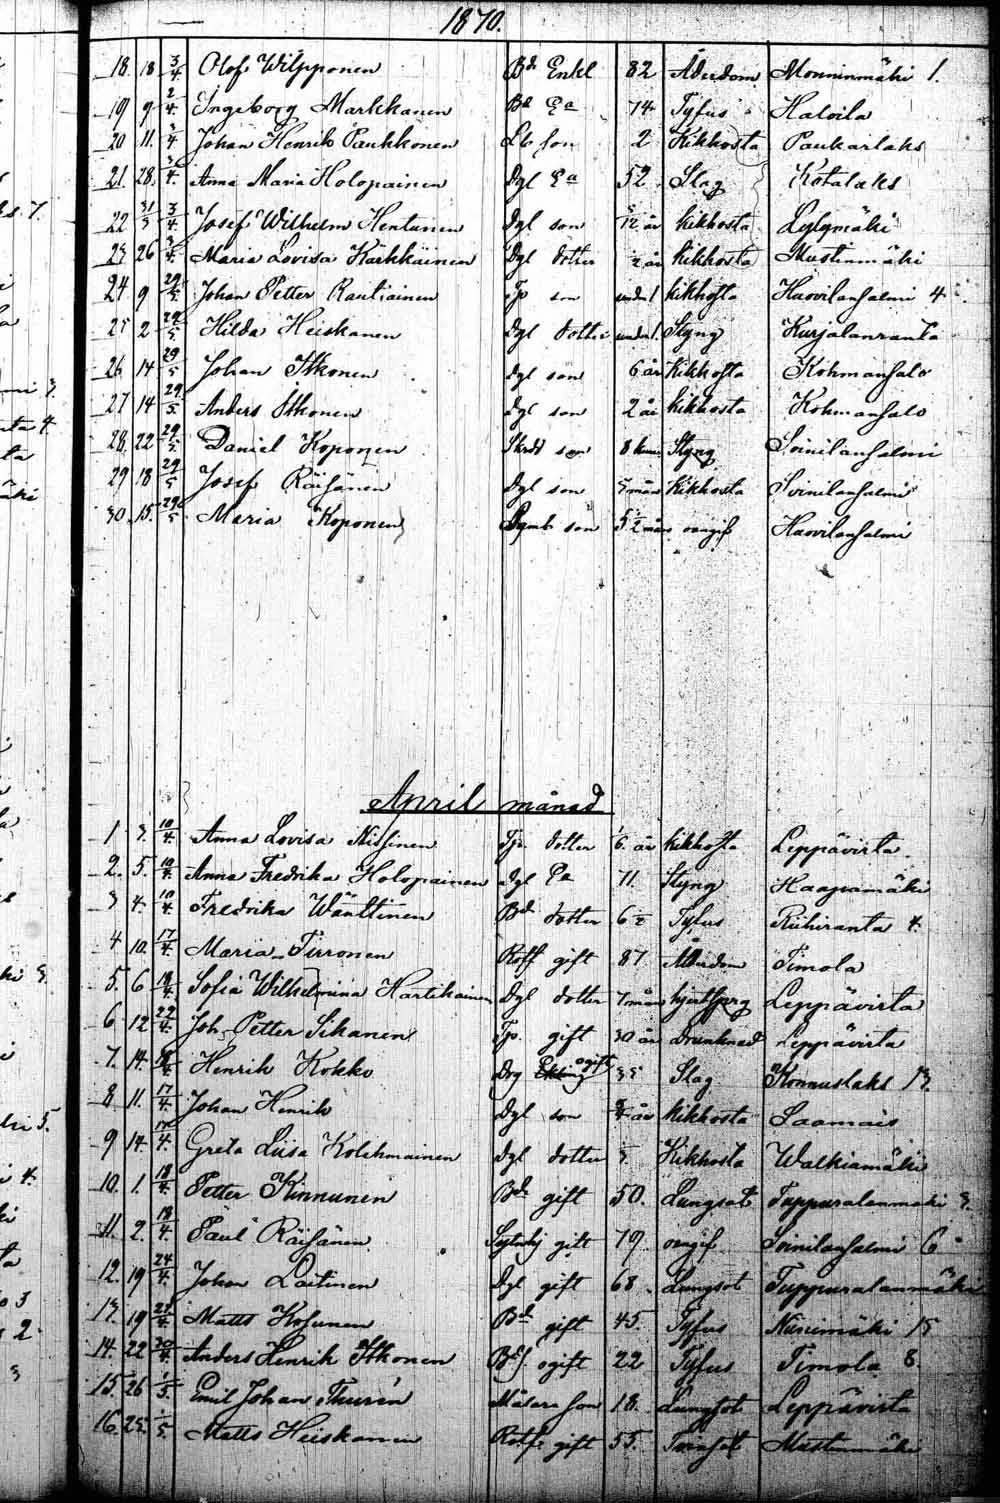 1870.
18. 18 3/4. Olof Wilpponen Bd Enkl 82 Ålderdom Monninmäki 1.
19 9 2/4. Ingeborg Markkanen Bd Ea 74 Tyfus Haloila
20 11. 3/4 Johan Henrik Paukkonen son 2 Kikhosta Paukarlaks
21. 28. 3/4. Anna Maria Holopainen Dgl Ea 52 Slag Kotalaks
22 31/3 3/4. Josef Wilhelm Hentunen Dgl son år kikhosta Lylymäki
23 26 3/4. Maria Lovisa Kärkkäinen Dgl dotter 2 år kikhosta Mustinmäki
24. 9 29/5 Johan Petter Rautiainen Tp son under 1 kikhosta Haavilansalmi 4
25 2 29/5 Hilda Heiskanen Dgl dotter under 1. Styng Kurjalanranta
26 14 29/5 Johan Itkonen dgl son 6 år Kikhosta Kohmansalo
27 14 29/5. Anders Itkonen dgl son 2 år kikhosta Kohmansalo
28. 22 29/5. Daniel Koponen son 8 Styng Soinilansalmi
29 18 29/5 Josef Räisänen Dgl son 5 mån Kikhosta Soinilansalmi
30. 15. 29/5 Maria Koponen son 5 1/2 mån oangif Haavilansalmi
April månad
1 3. 10/4. Anna Lovisa Nissinen Tp. dotter 6 år kikhosta Leppävirta
2. 5. 10/4. Anna Fredrika Holopainen Dgl Ea 71. Styng Haapamäki
3 4. 10/4. Fredrika Wänttinen Bd dotter 6 1/2 Tyfus Riihiranta 4.
4 10. 17/4. Maria Tirronen Rotf gift 87 Ålderdom Timola
5. 6 18/4. Sofia Wilhelmina Hartikainen Dgl dotter 7 mån Leppävirta
6 12 22/4. Joh. Petter Sikanen Tp. gift 30 år drunknad Leppävirta
7. 14. Henrik Kokko Drg ogift 35 Slag Konnuslaks 13.
8 11. 17/4. Johan Henrik Dgl son 3/4 år kikhosta Saamais
9 14. 17/4. Greta Liisa Kolehmainen Dgl dotter Kikhosta Walkiamäki
10. 1. 18/4. Petter Kinnunen Bd gift 50. Lungsot Tuppuralanmäki 3.
11. 2. 18/4. Paul Räisänen gift 79. oangif Soinilansalmi 6
12. 19 24/4. Johan Laitinen Dgl gift 68. Lungsot Tuppuralanmäki
13. 19 24/4. Matts Kosunen Bd gift 45. Tyfus Niinimäki 15
14. 22 30/4. Anders Henrik Itkonen ogift 22 Tyfus Timola 8.
15. 26 1/5 Emil Johan Thurén Målare son 18. Lungsot Leppävirta
16. 25. 1/5. Matts Heiskanen Rotf. gift 55. Mustinmäki